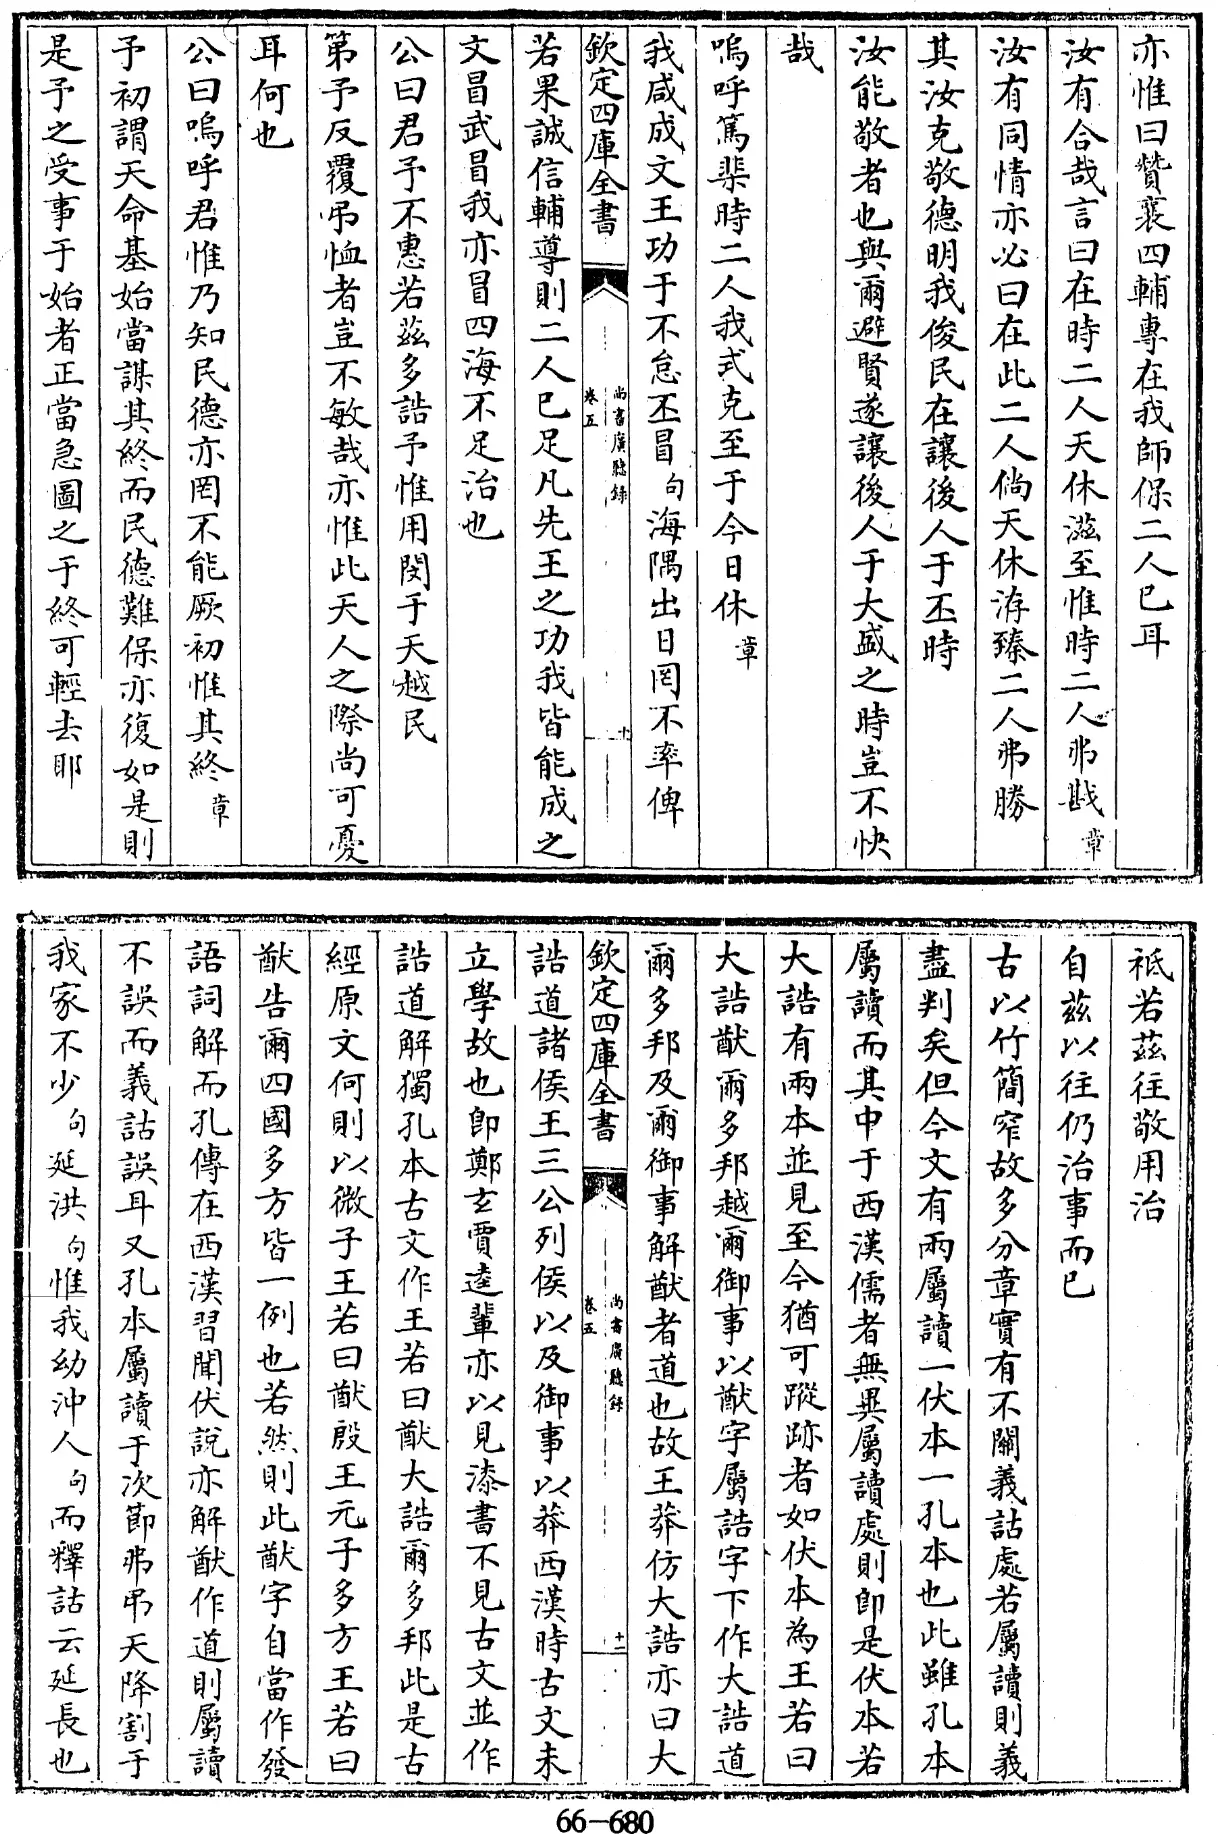 亦惟曰贊襄四輔專在我師保二人已耳
汝有合哉言曰在時二人天休滋至惟時二人弗戡章
汝有同情亦必曰在此二人倘天休洊臻二人弗勝
其汝克敬德明我俊民在讓後人于丕時
汝能敬者也與爾避賢遂讓後人于大盛之時豈不快
哉
嗚呼篤棐時二人我式克至于今日休章
我咸成文王功于不怠丕冒句海隅出日罔不率俾
欽定四庫全書
尚書廣聽錄
卷五
十
若果誠信輔導則二人已足凡先王之功我皆能成之
文昌武昌我亦冒四海不足治也
公曰君予不惠若茲多誥予惟用閔于天越民
第予反覆弔恤者豈不敏哉亦惟此天人之際尚可憂
耳何也
公曰嗚呼君惟乃知民德亦罔不能厥初惟其終章
予初謂天命基始當謀其終而民德難保亦復如是則
是予之受事于始者正當急圖之于終可輕去耶
祗若茲往敬用治
自茲以往仍治事而已
古以竹簡窄故多分章實有不關義詁處若屬讀則義
盡判矣但今文有兩屬讀一伏本一孔本也此雖孔本
屬讀而其中于西漢儒者無異屬讀處則即是伏本若
大誥有兩本並見至今猶可蹤跡者如伏本為王若曰
大誥猷爾多邦越爾御事以猷字屬誥字下作大誥道
爾多邦及爾御事解猷者道也故王莽仿大誥亦曰大
欽定四庫全書
尚書廣聽錄
卷五
十一
誥道諸侯王三公列侯以及御事以莽西漢時古文未
立學故也即鄭玄賈逵輩亦以見漆書不見古文並作
誥道解獨孔本古文作王若曰猷大誥爾多邦此是古
經原文何則以微子王若曰猷殷王元子多方王若曰
猷告爾四國多方皆一例也若然則此猷字自當作發
語詞解而孔傳在西漢習聞伏說亦解猷作道則屬讀
不誤而義詁誤耳又孔本屬讀于次節弗弔天降割于
我家不少句延洪句惟我幼沖人句而釋詁云延長也
66-680